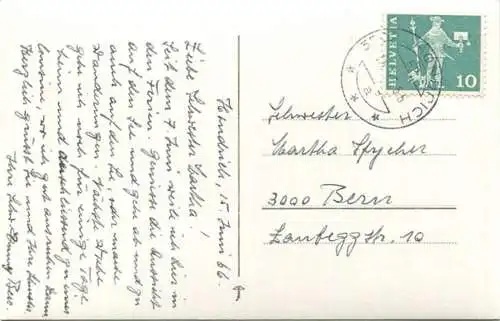 Hondrich, 15. Juni 66.
Liebe Schwester Martha!
Seit dem 7. Juni weile ich hier in
den Ferien. Geniesse die Aussicht
auf den See und gehe ab und zu
auch auf den See oder mache
Wanderungen. Nächste Woche
gehe ich noch für einige Tage
heim und anschliessend zu meiner
Cousine, wo ich gut ausruhen kann.
Herzlich grüsst Sie und Ihre
Ihre Schw.
HELVETIA
10
Schwester
Martha Spycher
3000 Bern
Laubeggstr. 10